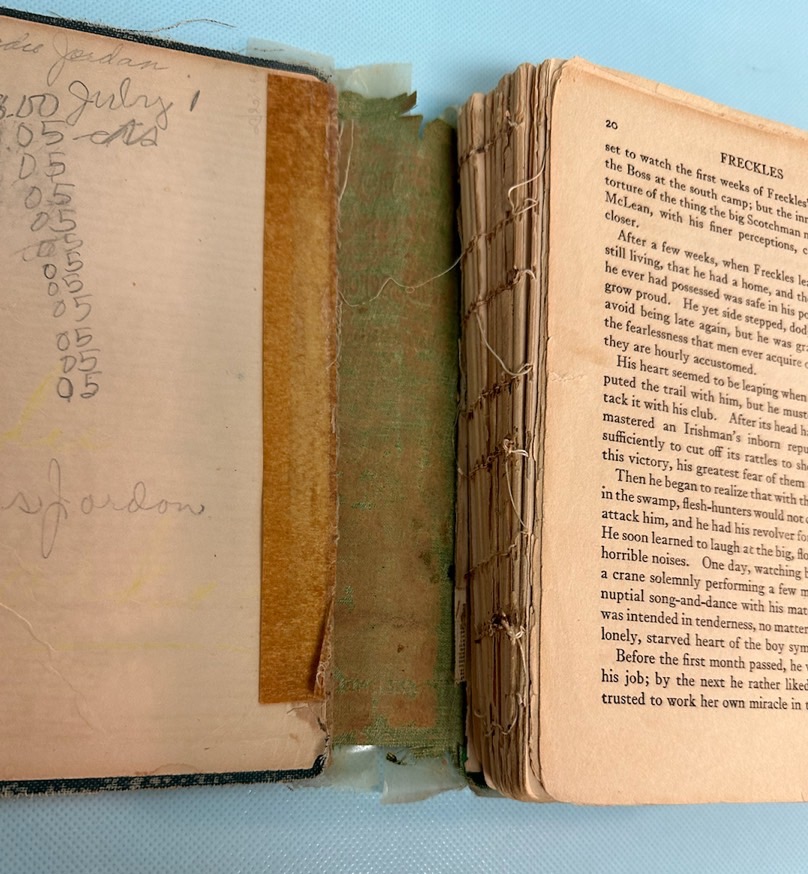 Jordan
.00 July 1
05 cts
05
05
05
05
05
05
05
05
05
s Jordon
20
FRECKLES
set to watch the first weeks of Freckles'
the Boss at the south camp; but the inn
torture of the thing the big Scotchman
McLean, with his finer perceptions,
closer.
After a few weeks, when Freckles
still living, that he had a home, and
he ever had possessed was safe in his
grow proud. He yet side stepped,
avoid being late again, but he was
the fearlessness that men ever acquire
they are hourly accustomed.
His heart seemed to be leaping when
puted the trail with him, but he
tack it with his club. After its head
mastered an Irishman's inborn
sufficiently to cut off its rattles to
this victory, his greatest fear of them
Then he began to realize that with
in the swamp, flesh-hunters would not
attack him, and he had his revolver
He soon learned to laugh at the big,
horrible noises. One day, watching
a crane solemnly performing a few
nuptial song-and-dance with his
was intended in tenderness, no matter
lonely, starved heart of the boy
Before the first month passed, he
his job; by the next he rather liked
trusted to work her own miracle in